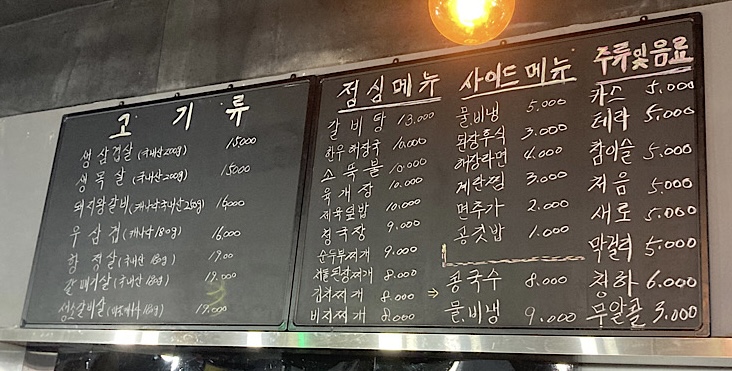 고기류
생삼겹살(국내산200g) 15000
생목살(국내산200g) 15000
돼지왕갈비(캐나다국내산250g) 16,000
우삼겹(캐나다180g) 16,000
항정살(국내산 180g)
갈매기살(국내산 180g) 19.000
생소갈비살 19.000
점심메뉴
갈비탕 13.000
한우해장국 10.000
소뚝불 10.000
육개장 10.000
제육덮밥 10.000
청국장 9.000
순두부찌개 9.000
차돌된장찌개 8.000
김치찌개 8.000
비지찌개 8.000
사이드메뉴
물.비냉 5.000
된장후식 3.000
해장라면 4.000
계란찜 3.000
면추가 2.000
공깃밥 1.000
⇒ 콩국수 8.000
물.비냉 9.000
주류및음료
카스 5.000
테라 5.000
참이슬 5.000
처음 5.000
새로 5.000
막걸리 5.000
청하 6.000
무알콜 3.000